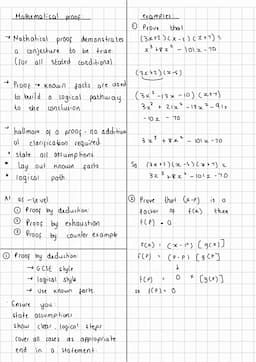 Mathematical proof
→ Mathatical proof demonstrates
a conjecture to be true
(for all stated conditions).
→ Proof → known facts are used
to build a logical pathway
to the conclusion
→ hallmark of a proof - no addition
al clarification required
• state all assumptions
• lay out known facts
• logical path.
At as-level
① Proof by deduction
② Proof by exhaustion
③ Proof by counter example
① Proof by deduction
→ GCSE style
→ logical style
→ use known facts
Ensure you:
state assumptions
show clear, logical steps
cover all cases as appropriate
end in a statement
examples:
① Prove that
(3x+2)(x-5)(x+7) ≡
3x³+8x²-101x-70
(3x+2)(x-5)
(3x²-13x-10)(x+7)
3x³+21x²-13x²-91x
-10x-70
3x³+8x²-101x-70
So (3x+2)(x-5)(x+7) ≡
3x³+8x²-101x-70
② Prove that (x-p) is a
factor of f(x) then
f(p) = 0
f(x) = (x-p)[g(x)]
f(p) = (p-p)[g(p)]
↓
f(p) = 0 × [g(p)]
so f(p) = 0